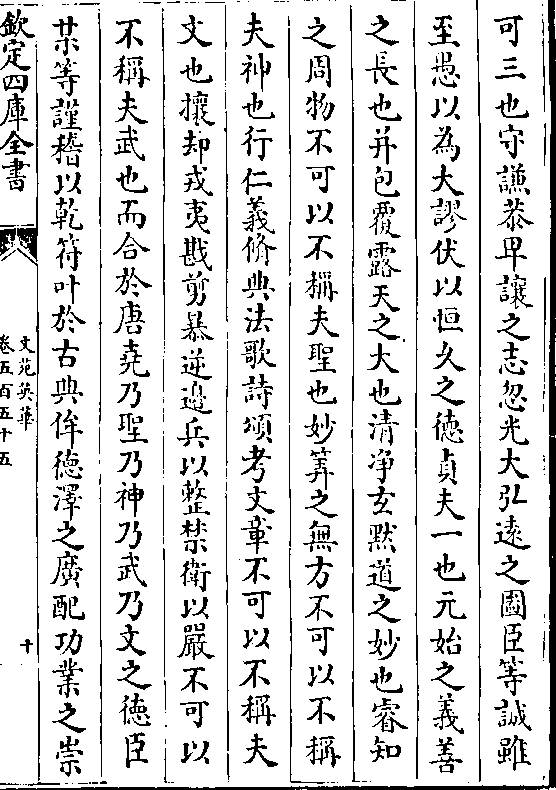 可三也守謙恭卑讓之志忽光大弘遠之圖臣等誠雖
至愚以為大謬伏以恒久之徳貞夫一也元始之義善
之長也并包覆露天之大也清净玄黙道之妙也睿知
之周物不可以不稱夫聖也妙筭之無方不可以不稱
夫神也行仁義脩典法歌詩頌考文章不可以不稱夫
文也攘却戎夷戡剪暴逆邉兵以整禁衛以嚴不可以
不稱夫武也而合於唐堯乃聖乃神乃武乃文之徳臣
某等謹稽以乾符叶於古典侔德澤之廣配功業之崇
欽定四庫全書
文苑英華
卷五百五十五
十